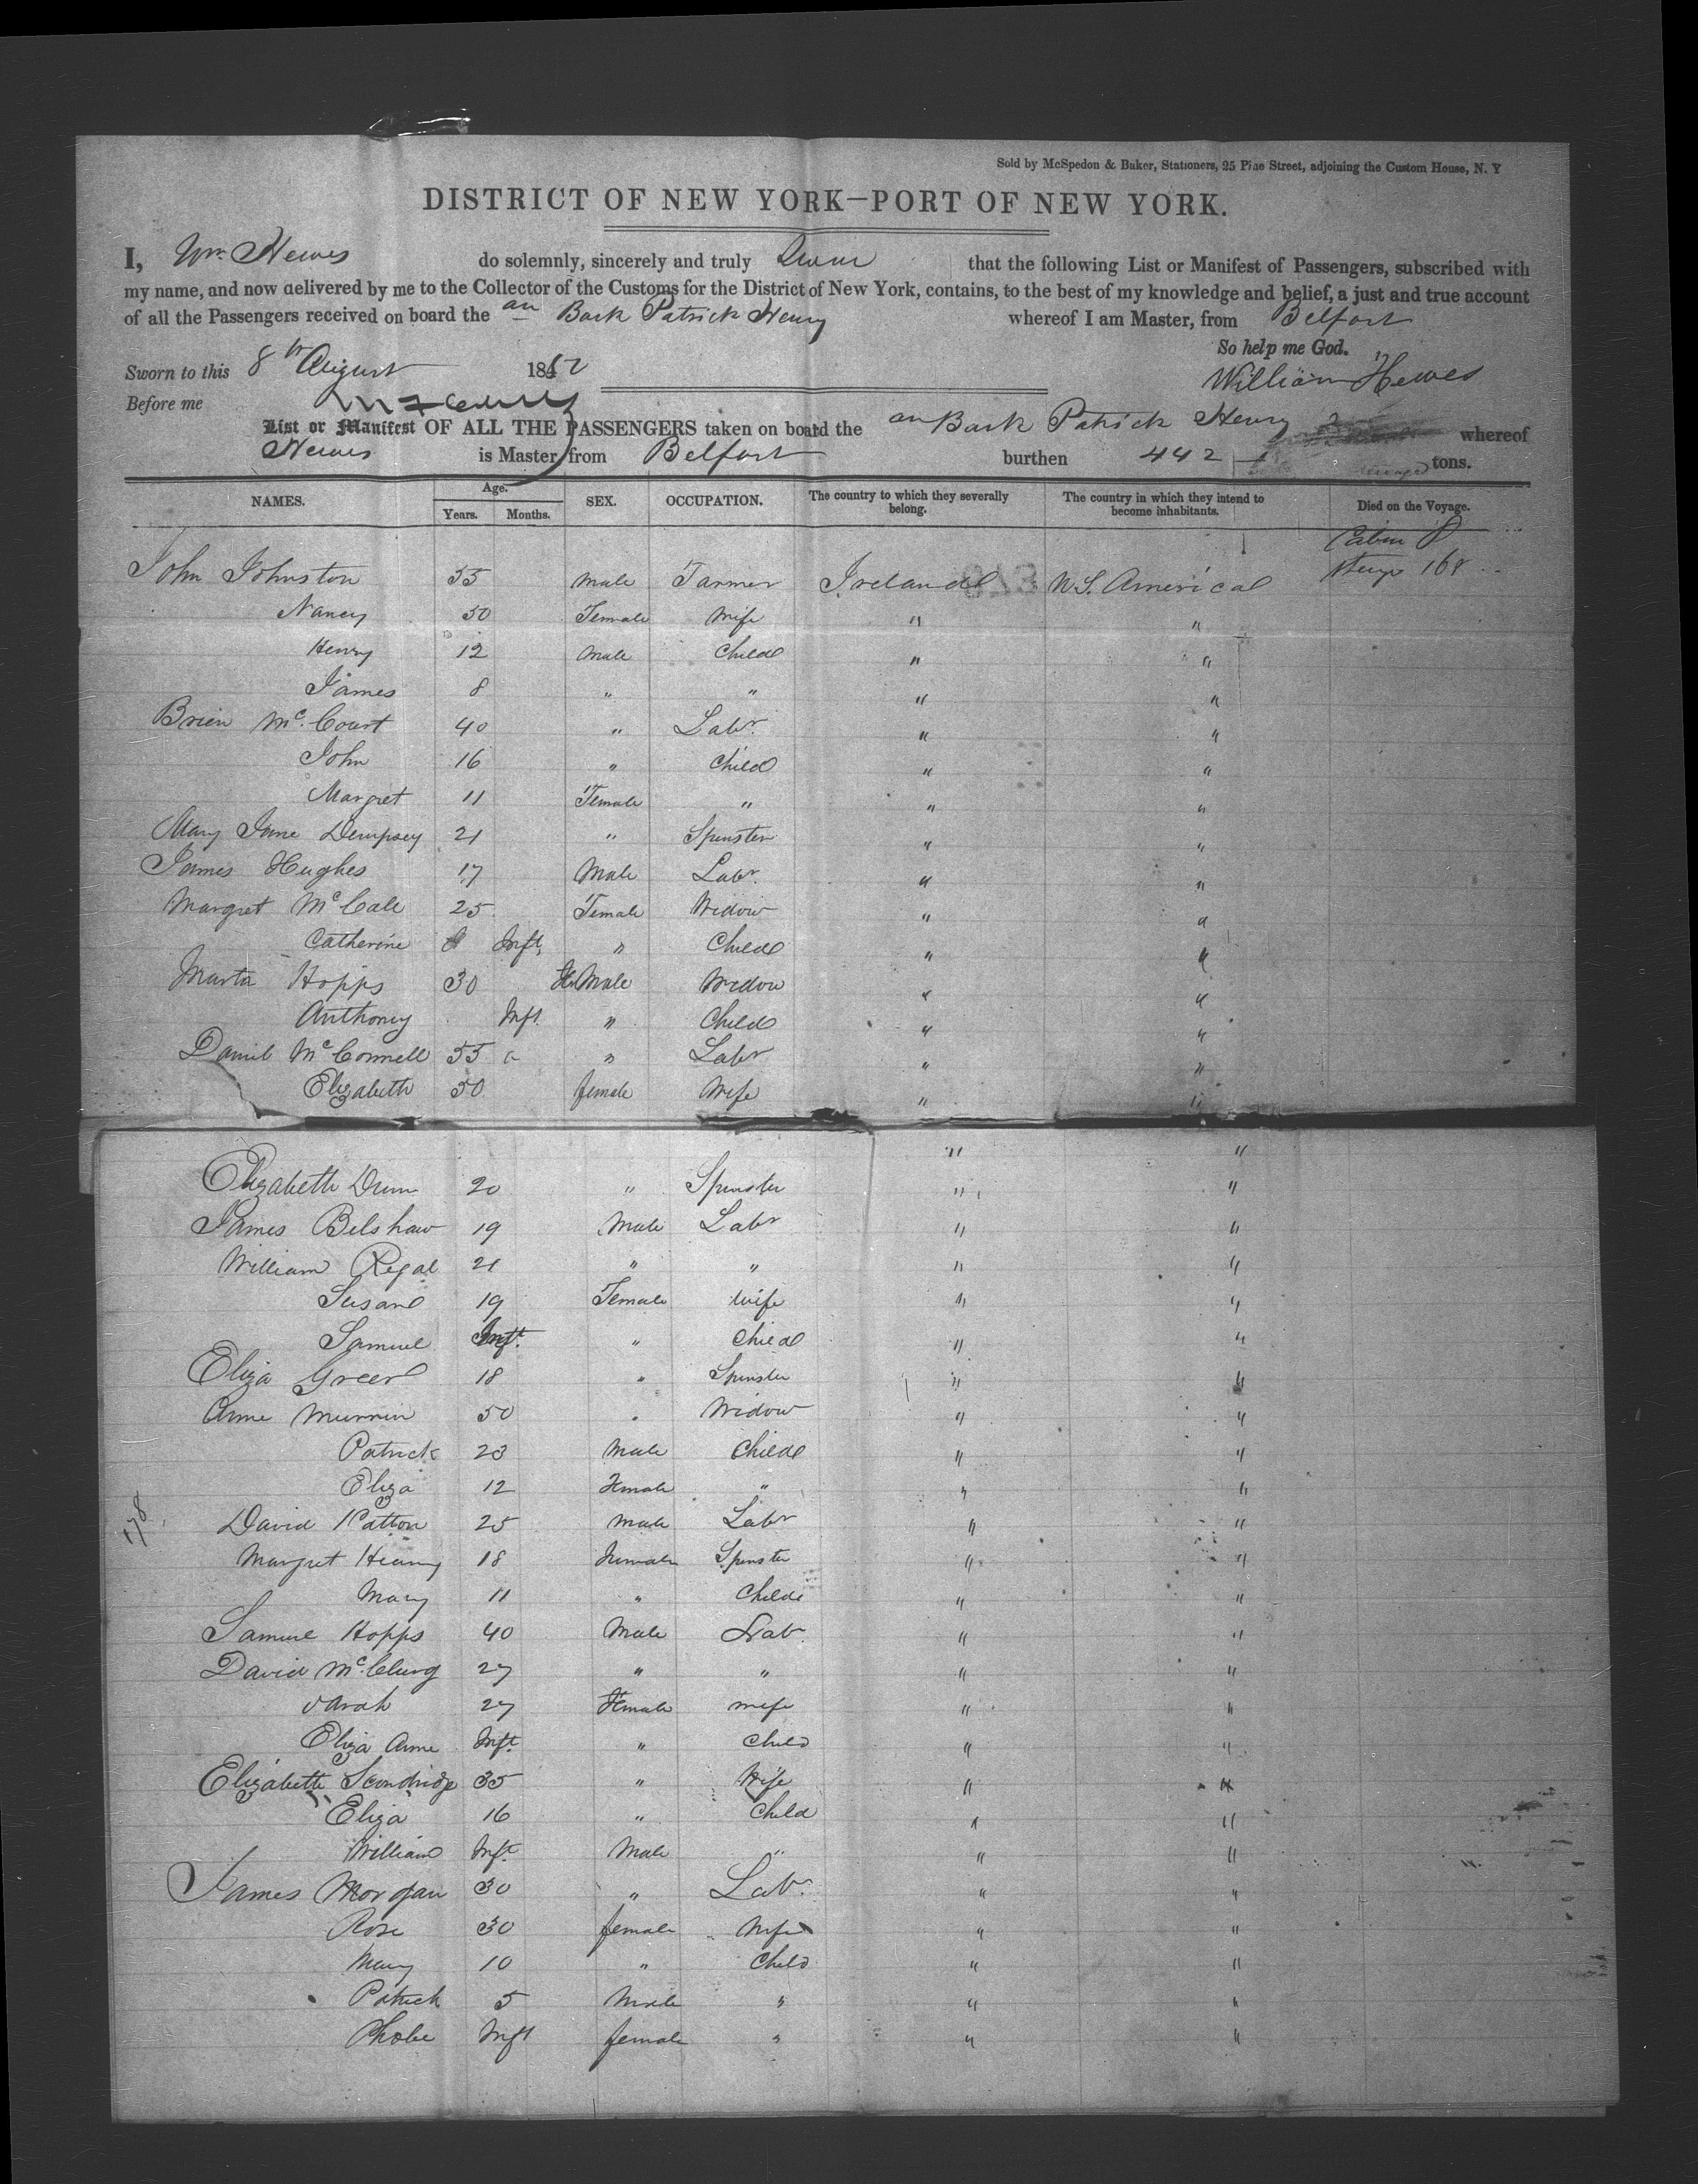 Sold by McSpedon & Baker, Stationers, 25 Pine Street, adjoining the Custom House, N. Y
DISTRICT OF NEW YORK—PORT OF NEW YORK.
I, Wm Hewes do solemnly, sincerely and truly Swear that the following List or Manifest of Passengers, subscribed with
my name, and now delivered by me to the Collector of the Customs for the District of New York, contains, to the best of my knowledge and belief, a just and true account
of all the Passengers received on board the an Bark Patrick Henry whereof I am Master, from Belfast
So help me God.
Sworn to this 8th August 1852 William Hewes
Before me
List or Manifest OF ALL THE PASSENGERS taken on board the am Bark Patrick Henry whereof
Hewes is Master, from Belfast burthen 442 tons.
NAMES. Age. Years. Months. SEX. OCCUPATION. The country to which they severally belong. The country in which they intend to become inhabitants. Died on the Voyage.
Cabin 8
Steerge 168
John Johnston 55 Male Farmer Ireland N.S. America
Nancy 50 Female Wife " "
Henry 12 Male Child " "
James 8 " " " "
Brien McCourt 40 " Labr. " "
John 16 " Child " "
Margret 11 Female " " "
Mary Jane Dempsey 21 " Spinster " "
James Hughes 17 Male Labr. " "
Margret McCale 25 Female Widow " "
Catherine Inft " Child " "
Marta Hopps 30 FeMale Widow " "
Anthoney Inft " Child " "
Daniel McConnell 55 " Labr " "
Elizabeth 50 female Wife " "
" "
Elizabeth Dunn 20 " Spinster " "
James Belshaw 19 Male Labr " "
William Regal 21 " " " "
Susan 19 Female Wife " "
Samuel Inft. " Child " "
Eliza Greer 18 " Spinster " "
Anne Murrin 50 " Widow " "
Patrick 23 Male Child " "
Eliza 12 Female " " "
178
David Patton 25 Male Labr " "
Margret Heany 18 Female Spinster " "
Mary 11 " Child " "
Samuel Hopps 40 Male Lab. " "
David McClurg 27 " " " "
Sarah 27 Female Wife " "
Eliza Anne Inft. " Child " "
Elizabeth 35 " Wife " "
Eliza 16 " Child " "
William Inft. Male " " "
James Morgan 30 " Lab. " "
Rose 30 female Wife " "
Mary 10 " Child " "
Patrick 5 Male " " "
Phobe Inft female " " "